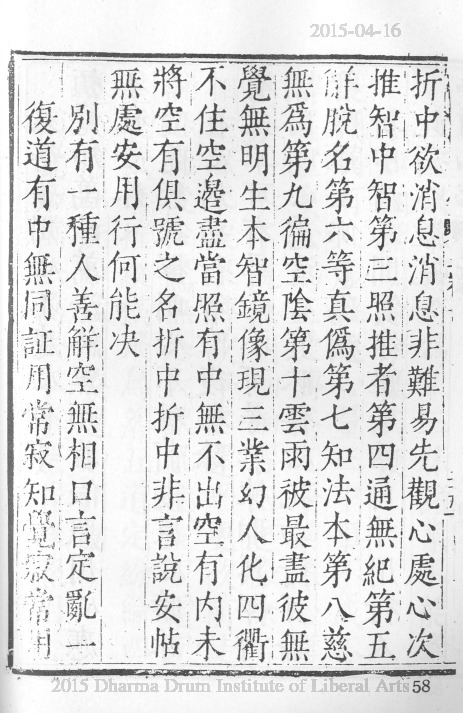 2015-04-16
折中欲消息消息非難易先觀心處心次
推智中智第三照推者第四通無紀第五
解脫名第六等真偽第七知法本第八慈
無為第九徧空陰第十雲雨被最盡彼無
覺無明生本智鏡像現三業幻人化四衢
不住空邊盡當照有中無不出空有內未
將空有俱號之名折中折中非言說安帖
無處安用行何能决
別有一種人善解空無相口言定亂一
復道有中無同証用常寂知覺寂常用
2015 Dharma Drum Institute of Liberal Arts
58